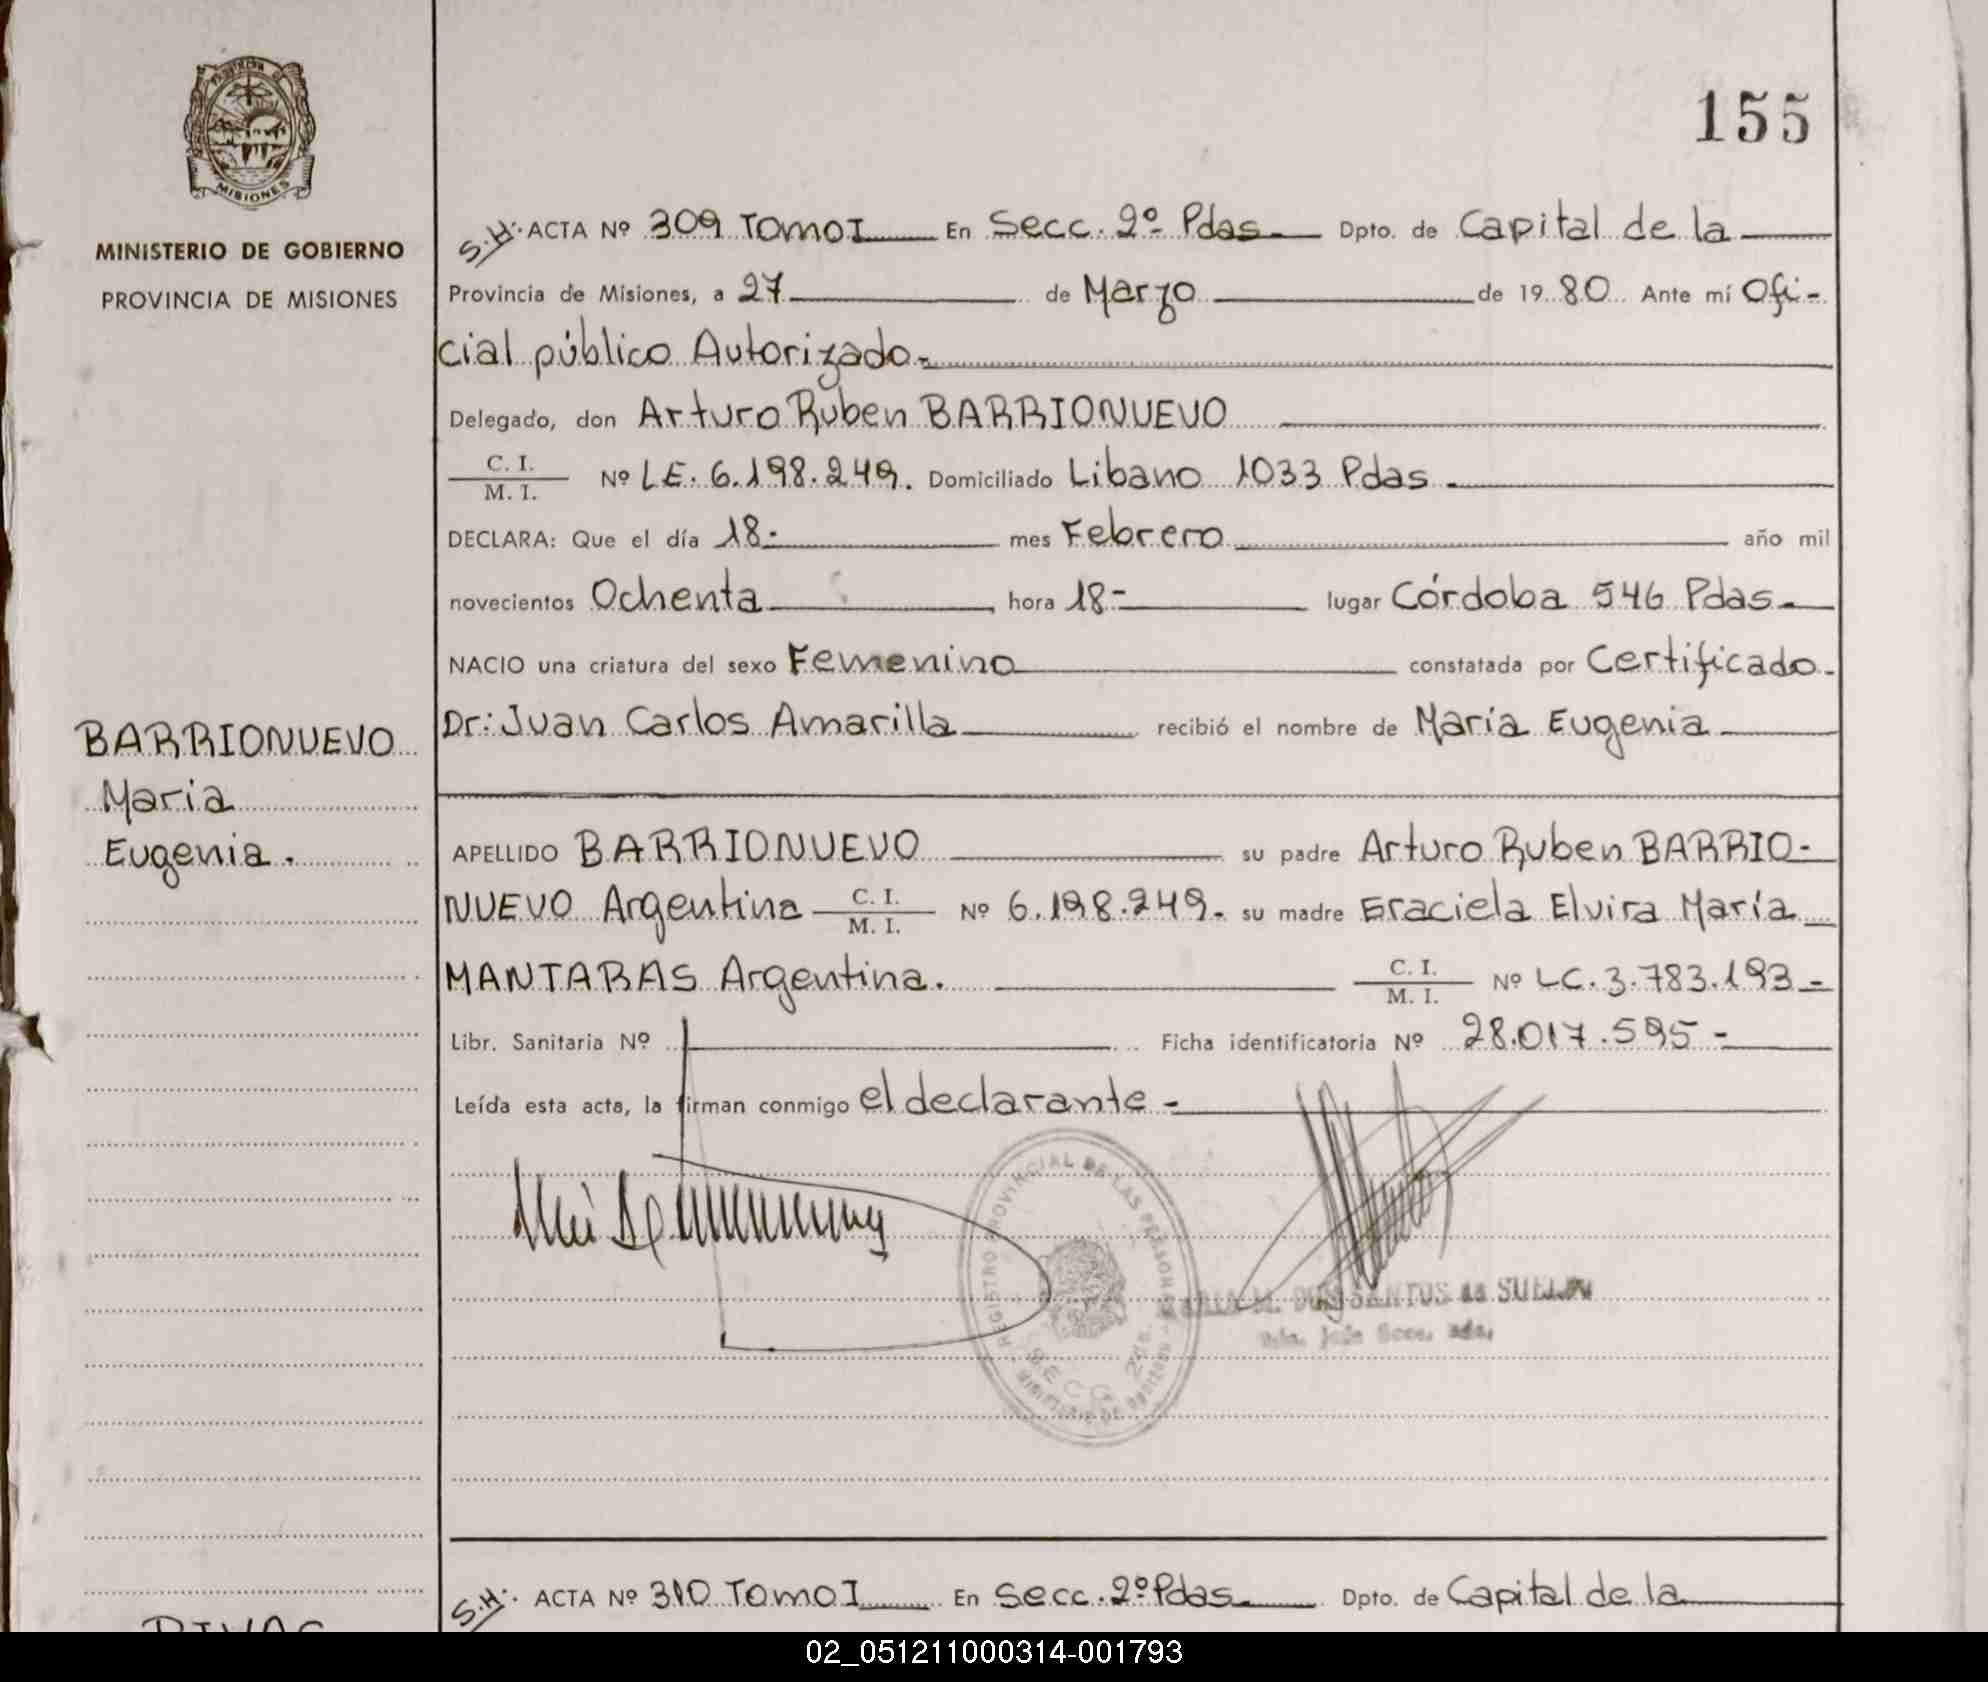 155
MISIONES
MINISTERIO DE GOBIERNO
PROVINCIA DE MISIONES
S.H. ACTA Nº 309 Tomo I En Secc. 2º Pdas. Dpto. de Capital de la
Provincia de Misiones, a 27 de Marzo de 19 80 Ante mí Ofi-
cial público Autorizado.
Delegado, don Arturo Ruben BARRIONUEVO
C. I.
M. I. Nº LE. 6.198.249. Domiciliado Libano 1033 Pdas.
DECLARA: Que el día 18- mes Febrero año mil
novecientos Ochenta hora 18- lugar Córdoba 546 Pdas.
NACIO una criatura del sexo Femenino constatada por Certificado.
Dr: Juan Carlos Amarilla recibió el nombre de María Eugenia
BARRIONUEVO
Maria
Eugenia.
APELLIDO BARRIONUEVO su padre Arturo Ruben BARRIO-
NUEVO Argentina C. I.
M. I. Nº 6.198.249. su madre Graciela Elvira María
MANTARAS Argentina. C. I.
M. I. Nº LC. 3.783.193-
Libr. Sanitaria Nº Ficha identificatoria Nº 28.017.595-
Leída esta acta, la firman conmigo el declarante-
REGISTRO PROVINCIAL DE LAS PERSONAS
SECC. 2da.
S.H. ACTA Nº 310 Tomo I En Secc. 2º Pdas. Dpto. de Capital de la
02_051211000314-001793